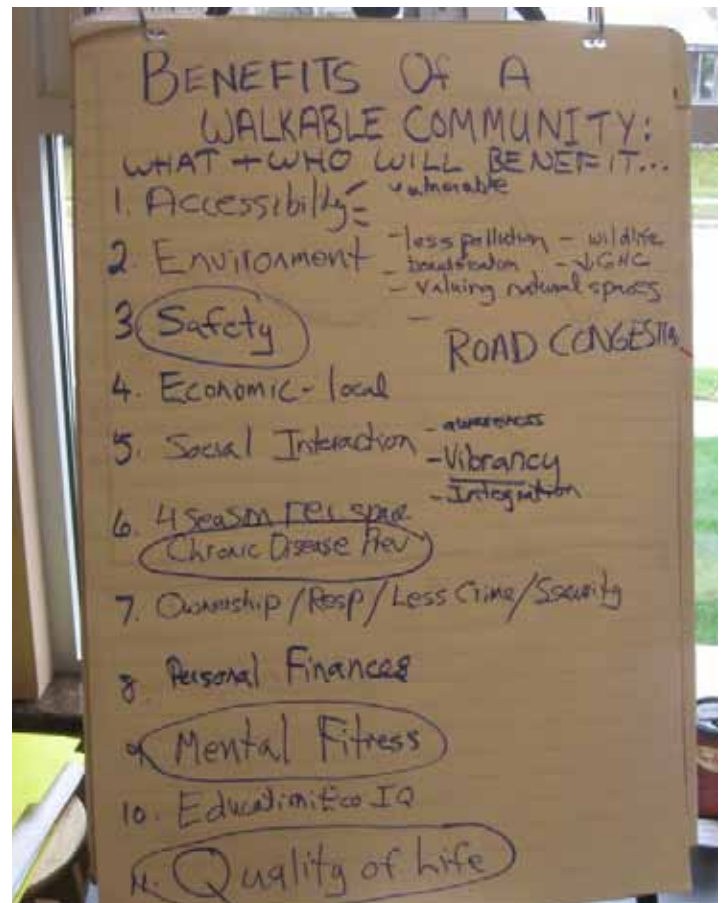 BENEFITS Of A
WALKABLE COMMUNITY:
WHAT + WHO WILL BENEFIT...
1. Accessibilty - vulnerable
2. Environment - less pollution - wildlife
- beautification - ↓GHG
- Valuing natural spaces
-
3 Safety
ROAD CONGESTION
4. Economic - local
5. Social Interaction - awareness
- Vibrancy
- Integration
6. 4 season rec space
Chronic Disease Prev
7. Ownership / Resp / Less Crime / Security
8 Personal Finances
9. Mental Fitness
10. Education Eco IQ
11. Quality of Life